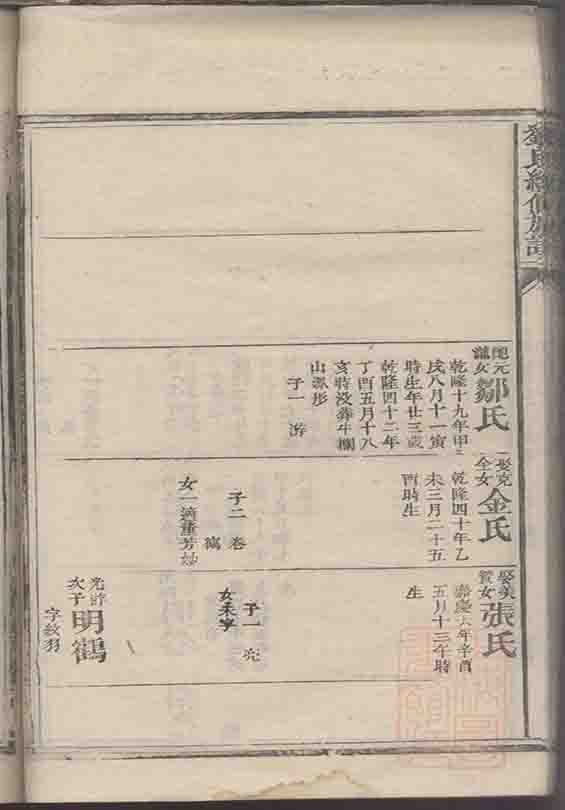 氏續修族譜
配元
女鄒氏
乾隆十九年甲
戌八月十一寅
時生年廿三歲
乾隆四十二年
丁酉五月十八
亥時没葬牛欄
山
子一
娶克
全女金氏
乾隆四十年乙
未三月二十五
酉時生
子二
女一適董芳
娶美
贊女張氏
嘉慶六年辛酉
五月十三午時
生
子一
女未字
次子明鶴
字紋羽